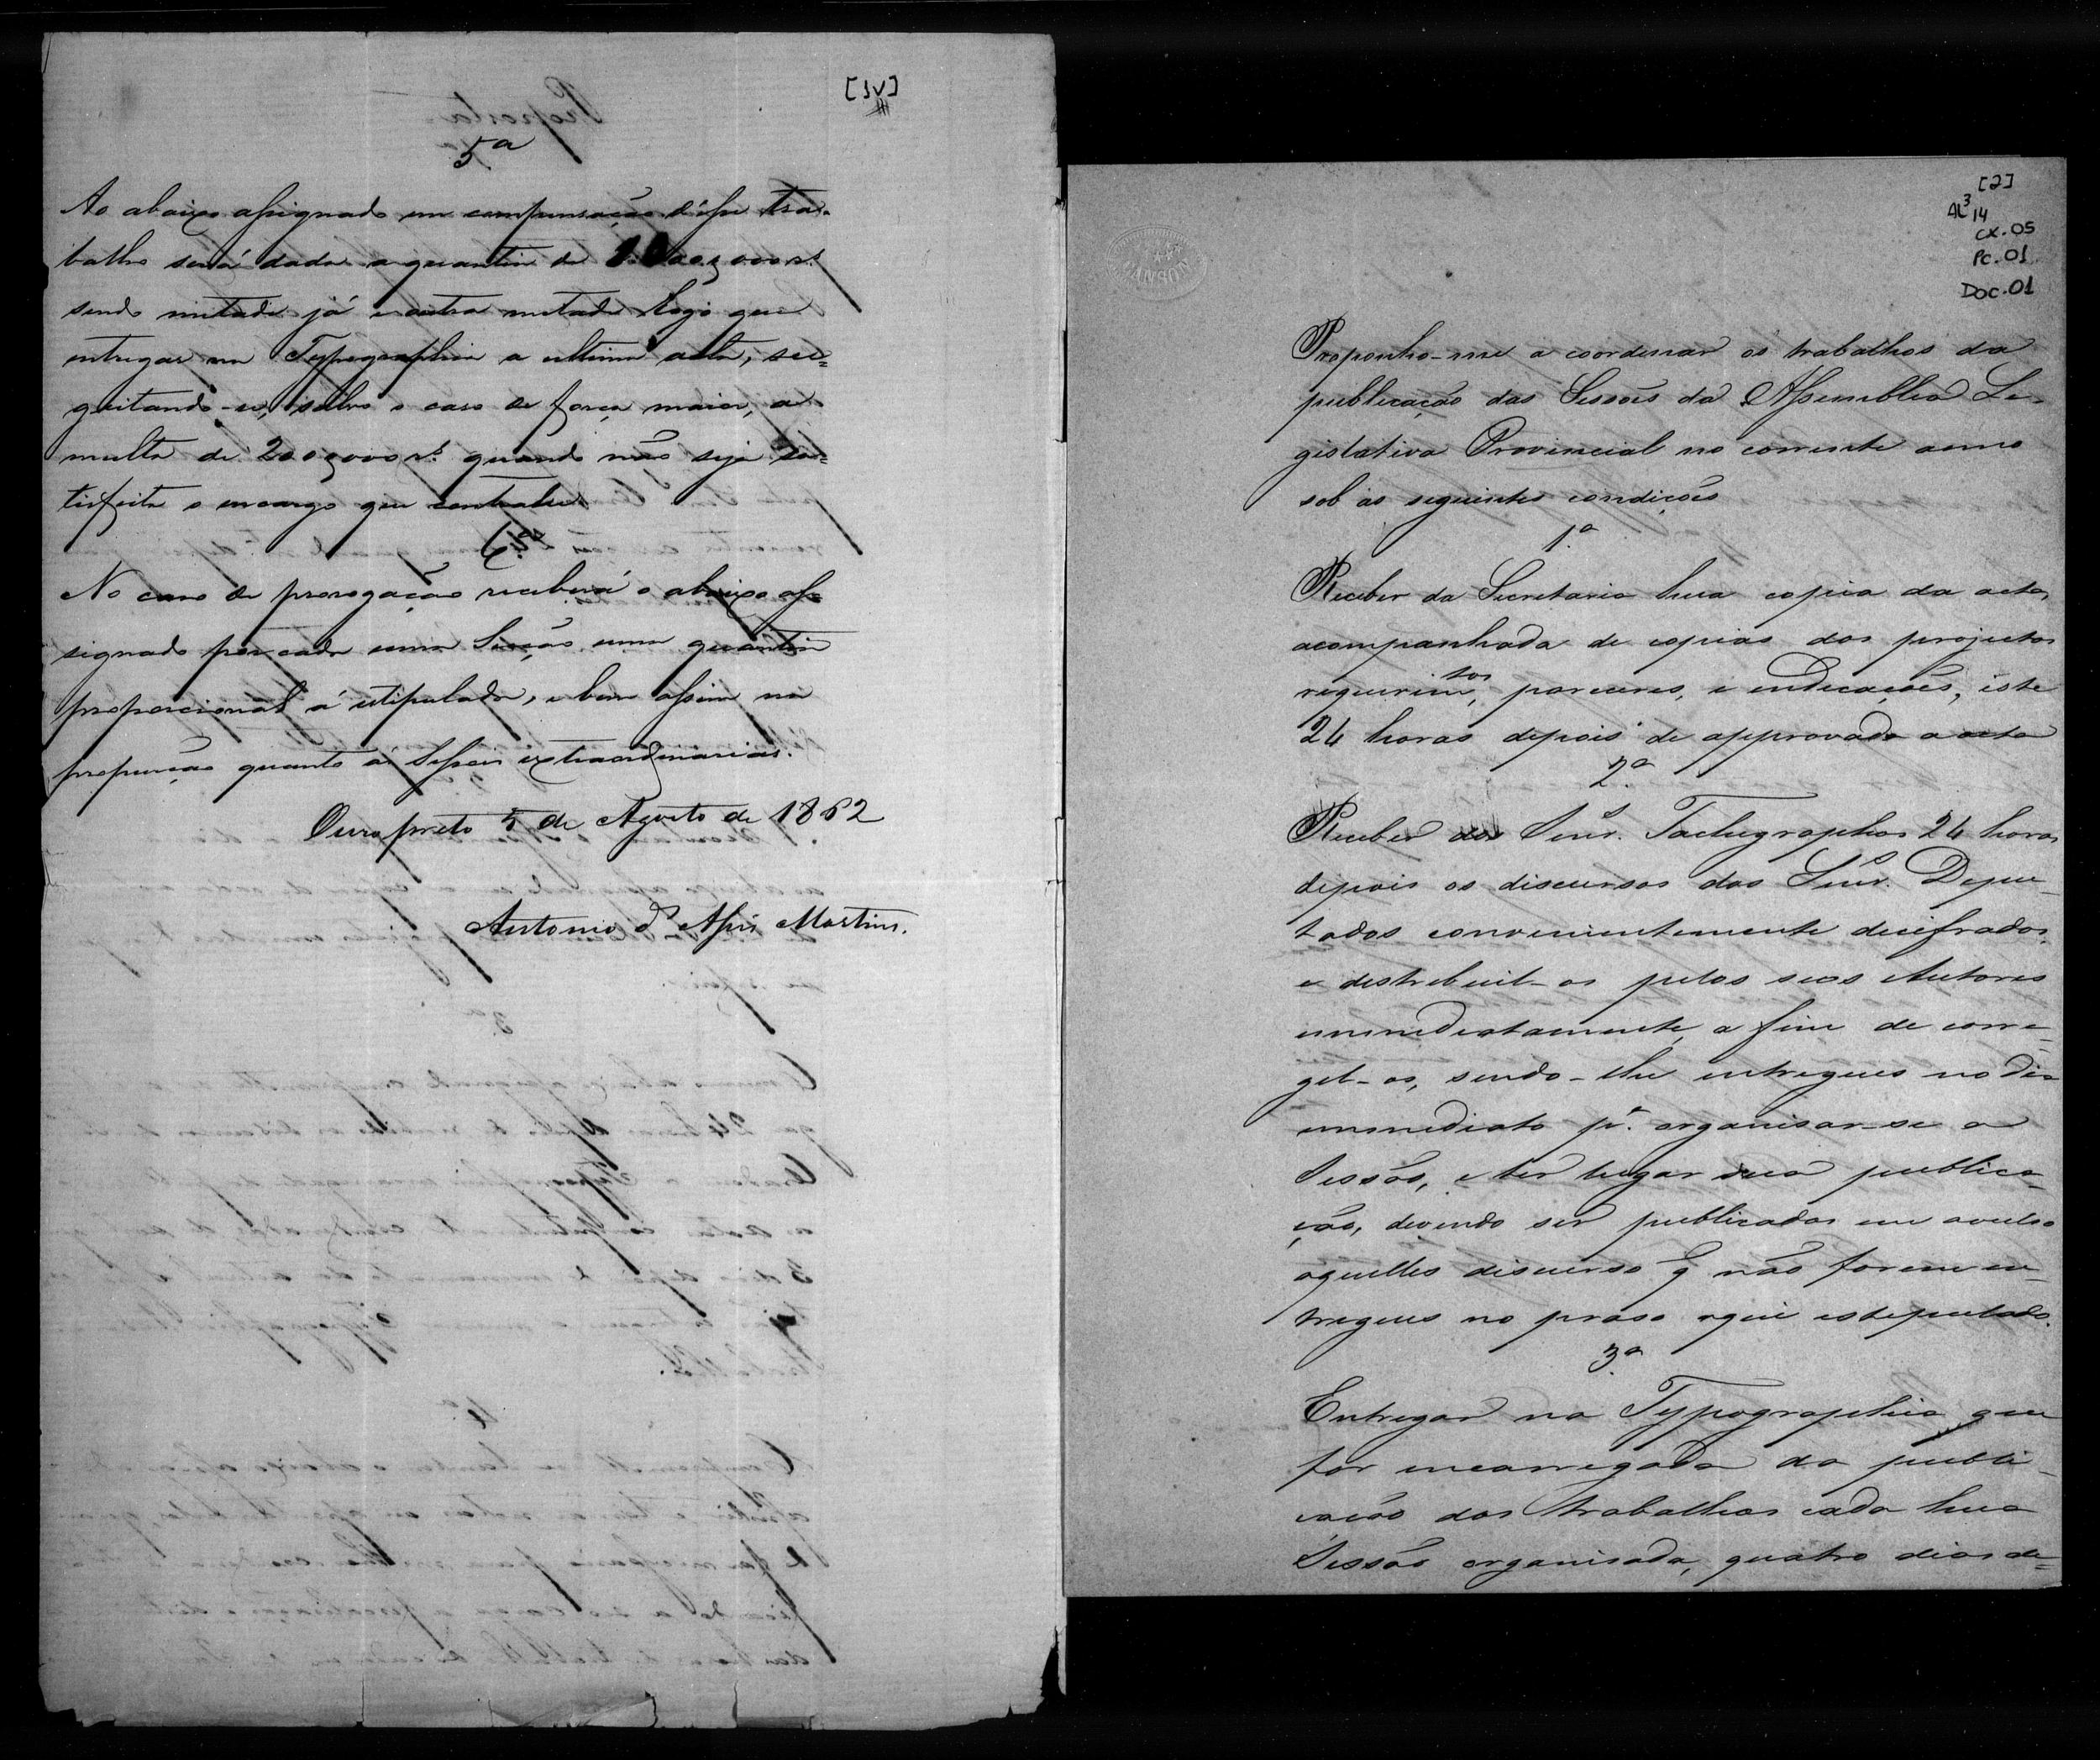 [1v]
5ª
Ao abaixo assignado em compensação d'esse tra-
balho será dada a quantia de 000 rs.
sendo metade já e outra metade logo que
entregar na Typographia a ultima acta, su=
geitando-se, salvo o caso de força maior, a
multa de 200$000 rs. quando não seja sa=
tisfeito o encargo que contrahe
6ª
No caso de prorogação receberá o abaixo as=
signado por cada uma Sessão uma quantia
proporcional á estipulada, e bem assim na
proporção quanto ás Sessões extraordinarias.
Ouro preto 5 de Agosto de 1862
Antonio d' Assis Martins.
[2]
AL³ 14
CX. 05
PC. 01
DOC. 01
Proponho-me a coordenar os trabalhos da
publicação das Sessões da Assemblea Le-
gislativa Provincial no corrente anno
sob as seguintes condições
1.ª
Receber da Secretaria hua copia da acta,
acompanhada de copias dos projectos
requerim.tos, pareceres, e indicações, iste
24 horas depois de approvada a acta
2.ª
Receber dos Senr.s Tachugraphos 24 horas
depois os discursos dos Senr.s Depu-
tados convenientemente decifrados,
e distrebuil-os pelos seos Autores
immediatamente, a fim de corre-
gel-os, sendo-lhe entregues no dia
immediato pª. organisar-se a
Sessão, e ter lugar sua publica-
ção, devendo ser publicados em avulso
aquelles discurso q não forem en-
tregues no praso aqui estepulado.
3.ª
Entregar na Typographia que
for encarregada da publi-
cação dos trabalhos cada hua
Sessão organisada, quatro dias de=